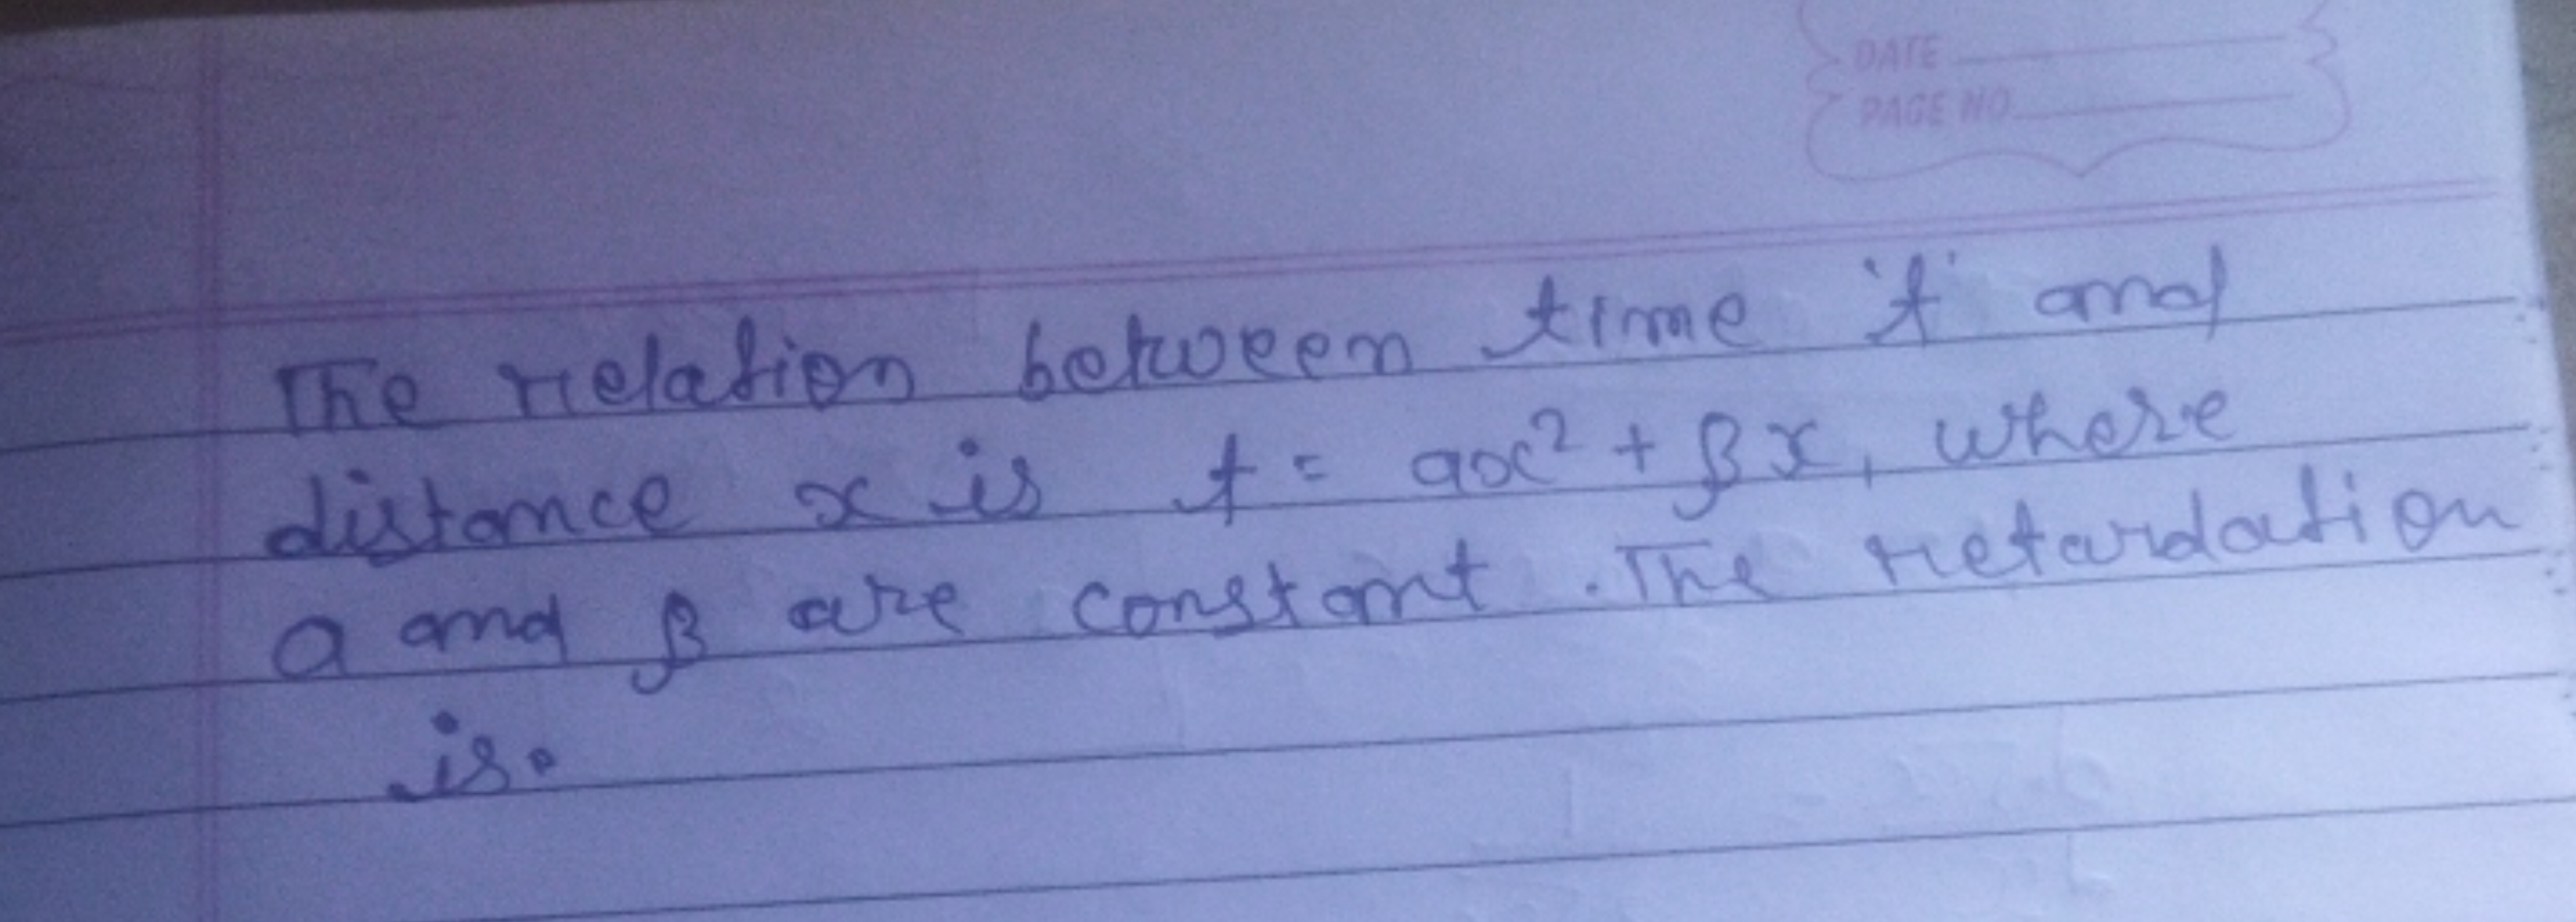 DATE
PAGE NO.
The relation between time 't' and
distance x is t = ax² + βx, where
a and β are constant . The retardation
is.